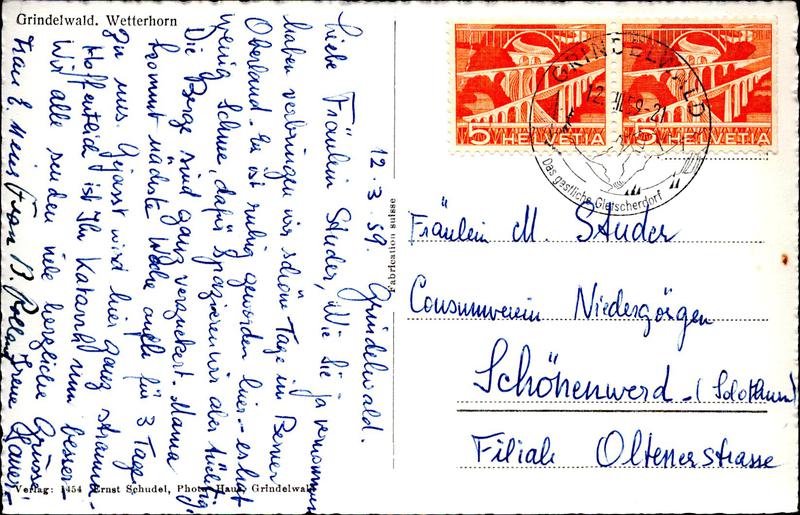 Grindelwald. Wetterhorn
12.3.59. Grindelwald.
Liebe Fräulein Studer, Wie Sie ja vernommen
haben verbringen wir schöne Tage im Berner
Oberland. Es ist ruhig geworden hier - es hat
wenig Schnee, dafür spazieren wir aber tüchtig.
Die Berge sind ganz verzuckert. Mama
kommt nächste Woche auch für 3 Tage
zu uns. Gejasst wird hier ganz stramm.
Hoffentlich ist Ihr Katarrh nun besser -
Wir alle senden viele herzliche Grüsse
Frau E. von B. Irene
Fabrication suisse
Verlag: 1454 Ernst Schudel, Photo Haus Grindelwald
5 HELVETIA
5 HELVETIA
GRINDELWALD
12. III. 59-21
Das gastliche Gletscherdorf
Fräulein M. Studer
Consumverein Niedergösgen
Schönenwerd - (Solothurn)
Filiale Oltenerstrasse